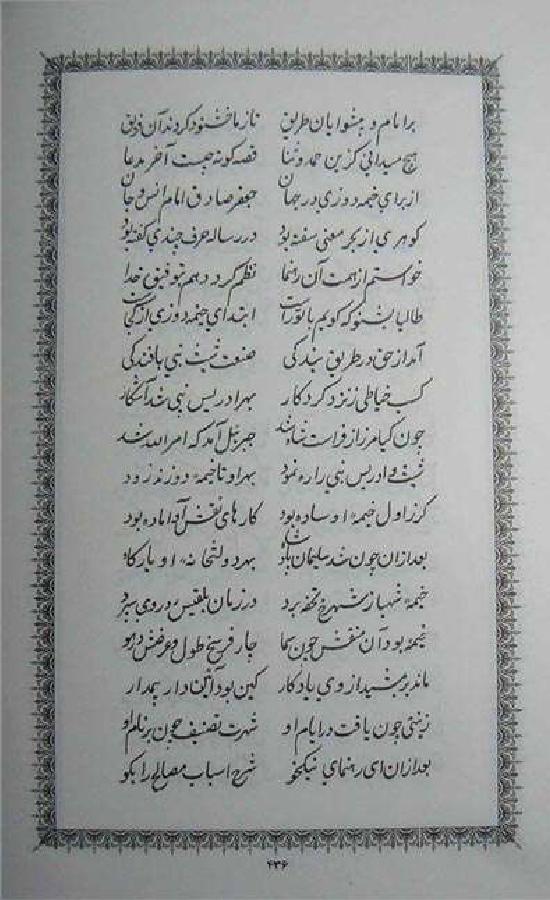 برامام و هنوایان طریق تاز ما خشنود گردند آن فریق
هیچ میدانی کزین حمد و ثنا قصه کوته چیست آخر مدعا
از برای خیمه دوزی در جهان جعفر صادق امام انس و جان
گوهری از بحر معنی سفته بود در رساله حرف چندی گفته بود
خواستم از همت آن رهنما نظم گردد هم توفیق خدا
طالبا بشنو که گویم با تو راست ابتدای خیمه دوزی از کجاست
آمد از حق در طریق بندگی صنعت شیث نبی بافندگی
کسب خیاطی ز نزد کردگار بهر ادریس نبی شد آشکار
چون گیامرز از فراست شاه شد جبرئیل آمد که امر الله شد
شیث و ادریس نبی را ره نمود بهر او تا خیمه دوزند زود
گرز اول خیمه او ساده بود کارهای نقش آن آماده بود
بعد ازان چون شد سلیمان بهر دولتخانه او بارگاه
خیمه شهباز شهرخ تحفه برد در زمان بلقیس بر وی سپرد
خیمه بود آن منقش چون سما چار فرسخ طول و عرضش
ماند بر جمشید از وی یادگار کین بود آئین دار
زینتی چون یافت در ایام او شهرت تصنیف چون بر نام او
بعد ازان ای رهنمای نیکخو شرح اسباب مصالح را بگو
۴۳۶